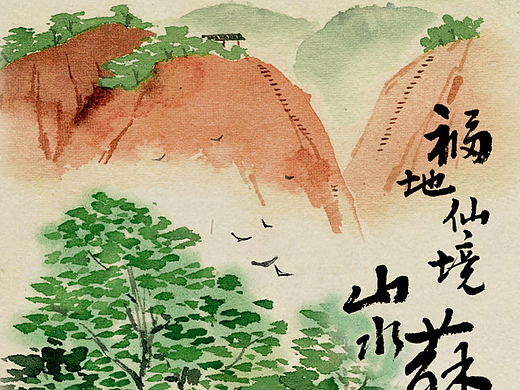 福地仙境
山水